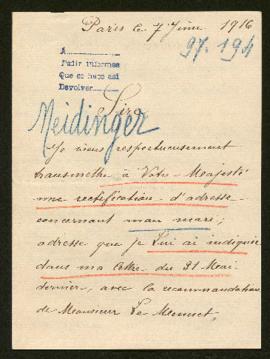 Paris le 7 Juin 1916
97.194
A
Pedir informes
Que se hace así
Devolver
Sire
Neidinger
Je viens respectueusement
transmettre à Votre Majesté
une rectification d'adresse
concernant mon mari;
adresse que je Lui ai indiquée
dans ma lettre du 31 Mai
dernier, avec la recommandation
de Monsieur Le